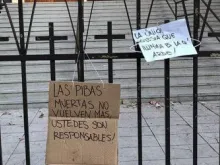 LAS PIBAS
MUERTAS NO
VUELVEN MAS
USTEDES SON
RESPONSABLES!
LA
QUE